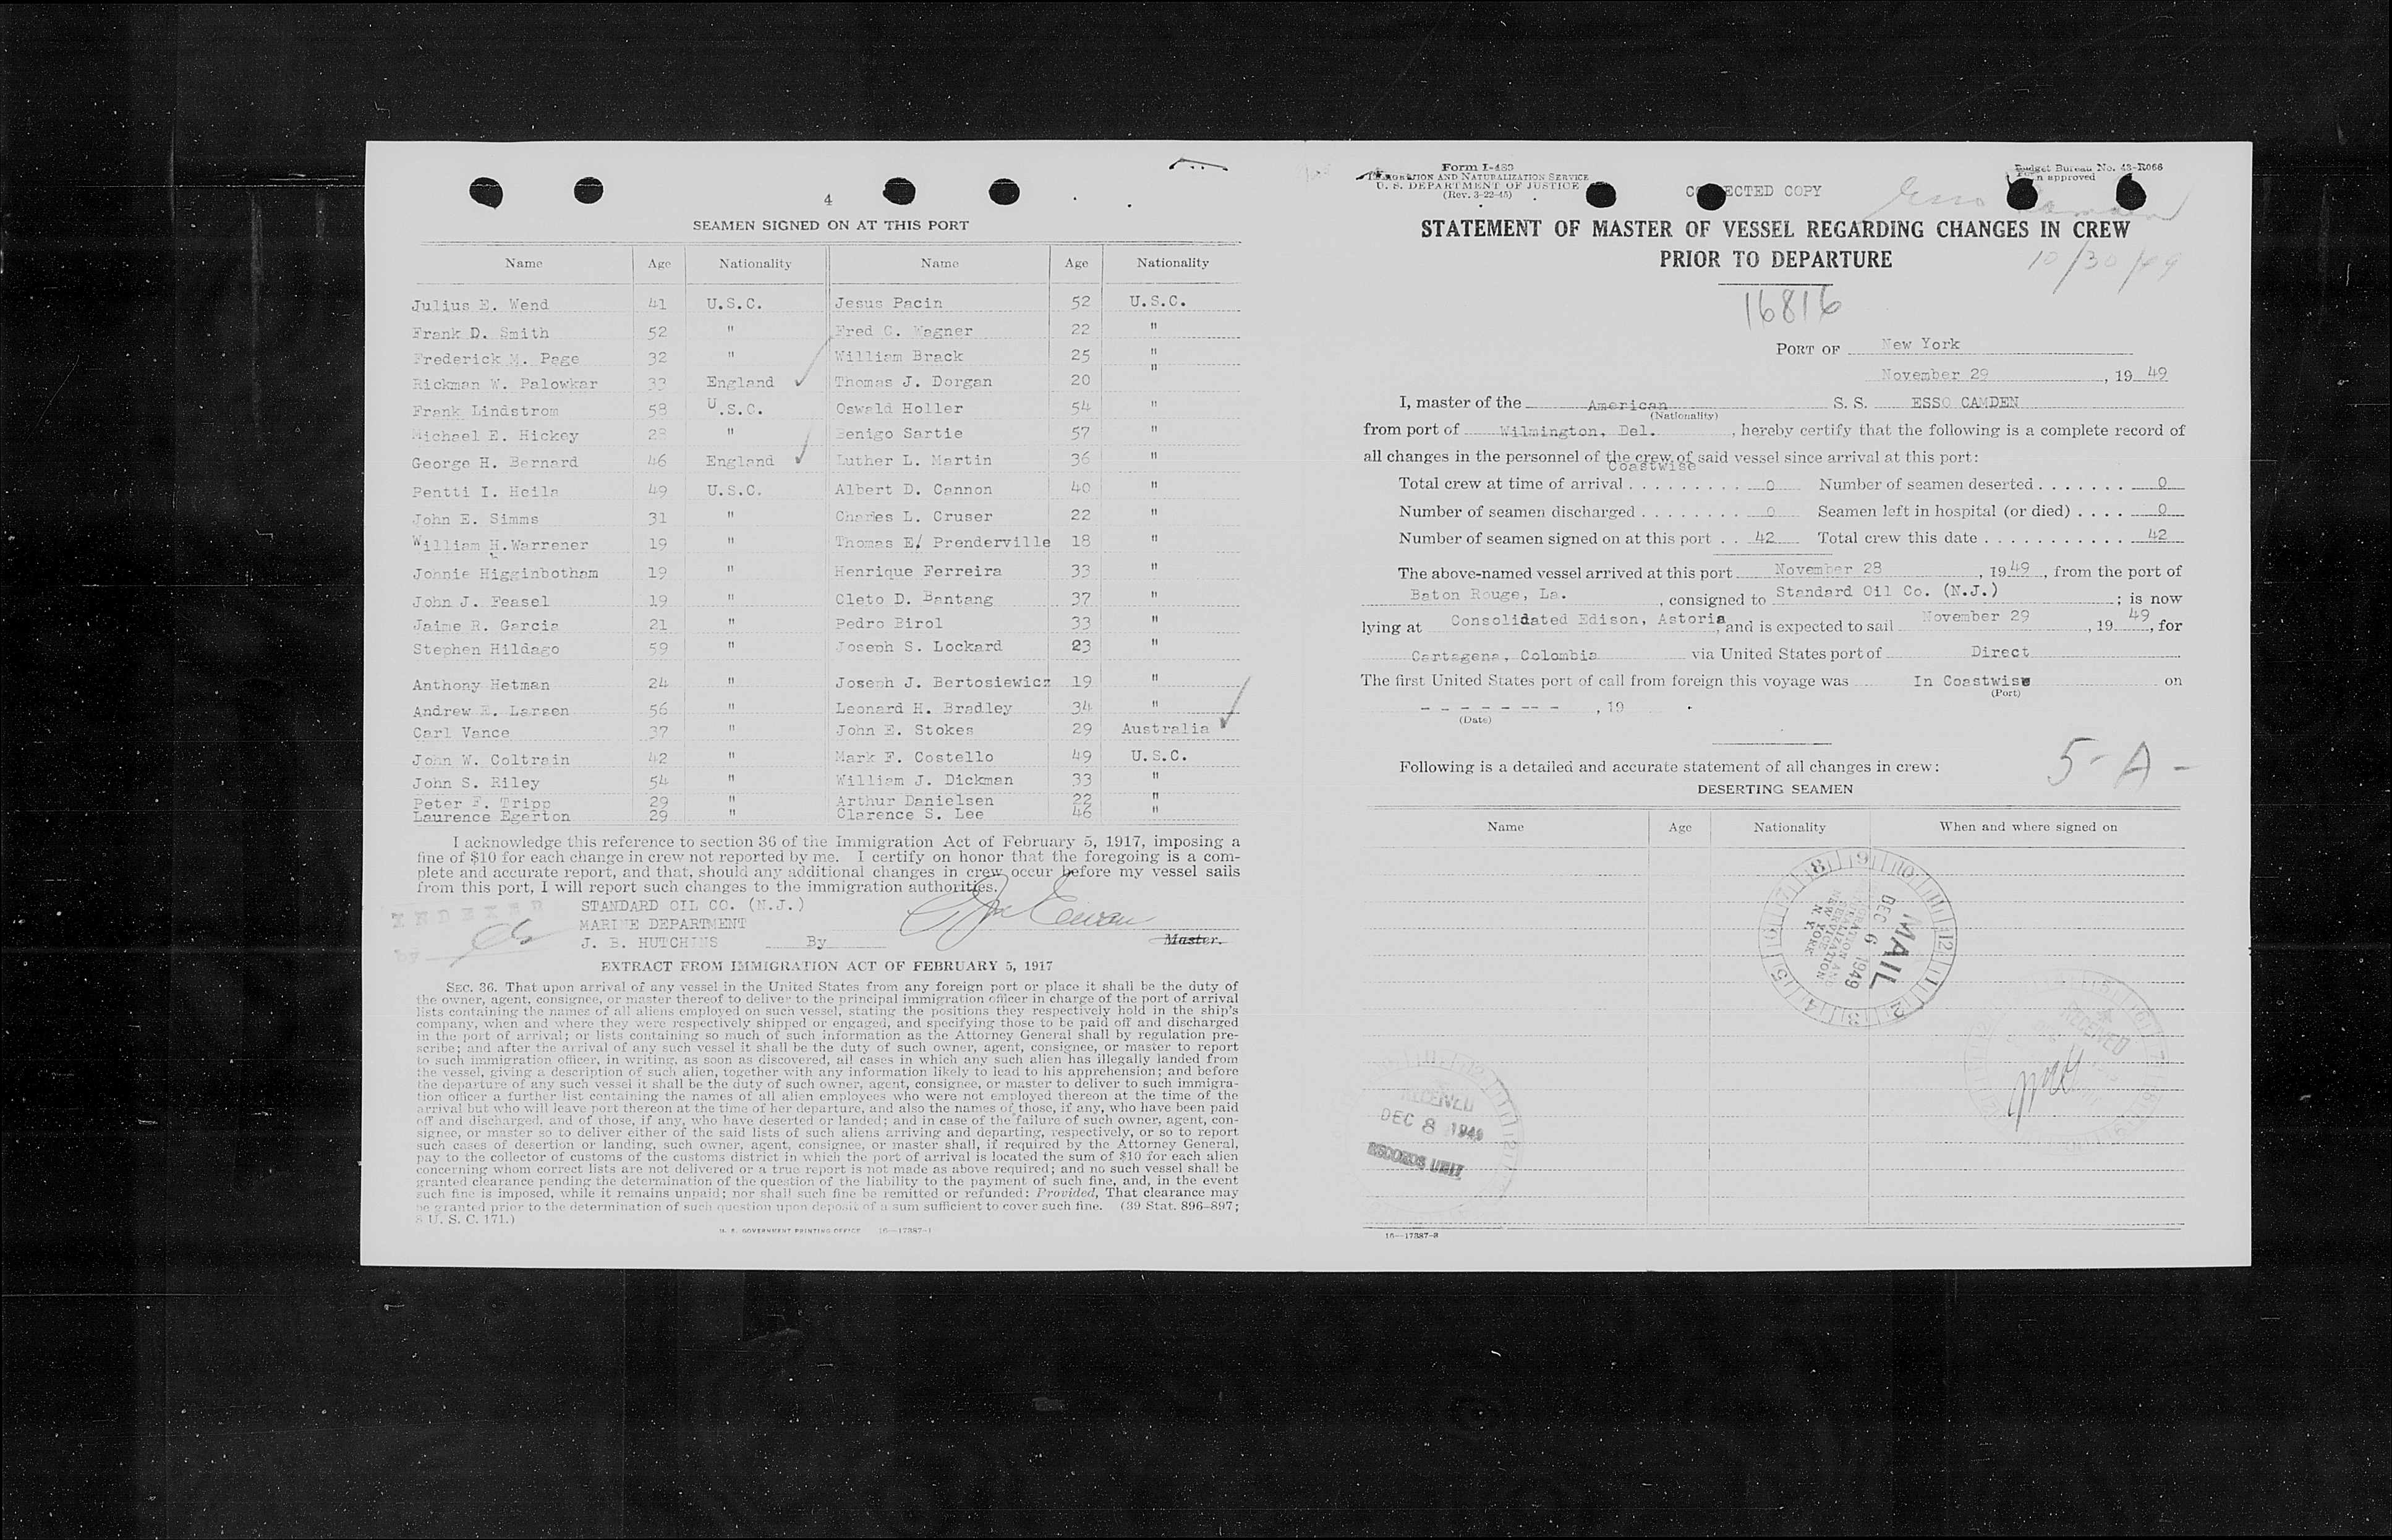 4
SEAMEN SIGNED ON AT THIS PORT
Name Age Nationality Name Age Nationality
Julius E. Wend 41 U.S.C. Jesus Pacin 52 U.S.C.
Frank D. Smith 52 " Fred C. Wagner 22 "
Frederick M. Page 32 " William Brack 25 "
Rickman W. Palowkar 33 England Thomas J. Dorgan 20 "
Frank Lindstrom 58 U.S.C. Oswald Holler 54 "
Michael E. Hickey " Benigo Sartie 57 "
George H. Bernard 46 England Luther L. Martin 36 "
Pentti I. Heila 49 U.S.C. Albert D. Cannon 40 "
John E. Simms 31 " Charles L. Cruser 22 "
William H. Warrener 19 " Thomas E. Prenderville 18 "
Johnie Higginbotham 19 " Henrique Ferreira 33 "
John J. Feasel 19 " Cleto D. Bantang 37 "
Jaime R. Garcia 21 " Pedro Birol 33 "
Stephen Hildago 59 " Joseph S. Lockard 23 "
Anthony Hetman 24 " Joseph J. Bertosiewicz 19 "
Andrew Larsen 56 " Leonard H. Bradley 34 "
Carl Vance 37 " John E. Stokes 29 Australia
John W. Coltrain 42 " Mark F. Costello 49 U.S.C.
John S. Riley 54 " William J. Dickman 33 "
Peter F. Tripp 29 " Arthur Danielsen 22 "
Laurence Egerton 29 " Clarence S. Lee 46 "
I acknowledge this reference to section 36 of the Immigration Act of February 5, 1917, imposing a
fine of $10 for each change in crew not reported by me. I certify on honor that the foregoing is a com-
plete and accurate report, and that, should any additional changes in crew occur before my vessel sails
from this port, I will report such changes to the immigration authorities.
INDEXED
by
STANDARD OIL CO. (N.J.)
MARINE DEPARTMENT
J. B. HUTCHINS By Master.
EXTRACT FROM IMMIGRATION ACT OF FEBRUARY 5, 1917
SEC. 36. That upon arrival of any vessel in the United States from any foreign port or place it shall be the duty of
the owner, agent, consignee, or master thereof to deliver to the principal immigration officer in charge of the port of arrival
lists containing the names of all aliens employed on such vessel, stating the positions they respectively hold in the ship's
company, when and where they were respectively shipped or engaged, and specifying those to be paid off and discharged
in the port of arrival; or lists containing so much of such information as the Attorney General shall by regulation pre-
scribe; and after the arrival of any such vessel it shall be the duty of such owner, agent, consignee, or master to report
to such immigration officer, in writing, as soon as discovered, all cases in which any such alien has illegally landed from
the vessel, giving a description of such alien, together with any information likely to lead to his apprehension; and before
the departure of any such vessel it shall be the duty of such owner, agent, consignee, or master to deliver to such immigra-
tion officer a further list containing the names of all alien employees who were not employed thereon at the time of the
arrival but who will leave port thereon at the time of her departure, and also the names of those, if any, who have been paid
off and discharged, and of those, if any, who have deserted or landed; and in case of the failure of such owner, agent, con-
signee, or master so to deliver either of the said lists of such aliens arriving and departing, respectively, or so to report
such cases of desertion or landing, such owner, agent, consignee, or master shall, if required by the Attorney General,
pay to the collector of customs of the customs district in which the port of arrival is located the sum of $10 for each alien
concerning whom correct lists are not delivered or a true report is not made as above required; and no such vessel shall be
granted clearance pending the determination of the question of the liability to the payment of such fine, and, in the event
such fine is imposed, while it remains unpaid; nor shall such fine be remitted or refunded: Provided, That clearance may
be granted prior to the determination of such question upon deposit of a sum sufficient to cover such fine. (39 Stat. 896-897;
8 U. S. C. 171.)
U. S. GOVERNMENT PRINTING OFFICE 16—17387-1
Form I-489
IMMIGRATION AND NATURALIZATION SERVICE
U. S. DEPARTMENT OF JUSTICE
(Rev. 3-22-45)
Budget Bureau No. 43-R066
approved
CORRECTED COPY
Esso Camden
STATEMENT OF MASTER OF VESSEL REGARDING CHANGES IN CREW
PRIOR TO DEPARTURE
10/30/49
16816
PORT OF New York
November 29, 19 49
I, master of the American S. S. ESSO CAMDEN
(Nationality)
from port of Wilmington, Del., hereby certify that the following is a complete record of
all changes in the personnel of the crew of said vessel since arrival at this port:
Coastwise
Total crew at time of arrival . . . . . . . . . . 0 Number of seamen deserted . . . . . . . 0
Number of seamen discharged . . . . . . . . . 0 Seamen left in hospital (or died) . . . . 0
Number of seamen signed on at this port . . 42 Total crew this date . . . . . . . . . . . . 42
The above-named vessel arrived at this port November 28, 1949, from the port of
Baton Rouge, La., consigned to Standard Oil Co. (N.J.); is now
lying at Consolidated Edison, Astoria, and is expected to sail November 29, 19 49, for
Cartagena, Colombia via United States port of Direct
The first United States port of call from foreign this voyage was In Coastwise on
(Port)
- - - - - - - - -, 19 .
(Date)
5-A-
Following is a detailed and accurate statement of all changes in crew:
DESERTING SEAMEN
Name Age Nationality When and where signed on
MAIL
DEC 6 1949
IMMIGRATION AND
NATURALIZATION
SERVICE
NEW YORK
N. Y.
RECEIVED
RECEIVED
DEC 8 1949
RECORDS UNIT
16—17387-3